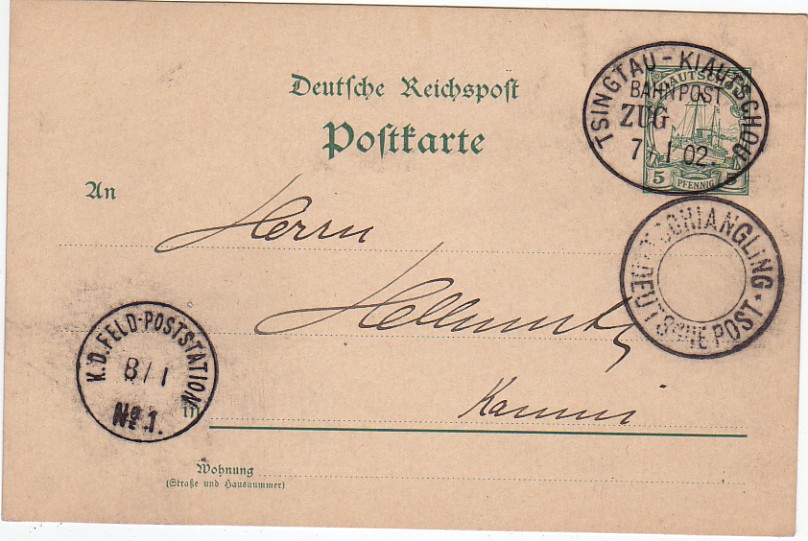 Deutsche Reichspost
Postkarte
TSINGTAU - KIAUTSCHOU
KIAUTSCHOU
BAHNPOST
ZUG
7 1 02.
5 PFENNIG 5
An
Herrn
TSCHIANGLING
DEUTSCHE POST
K.D. FELD-POSTSTATION
8/1
No. 1.
in
Wohnung
(Straße und Hausnummer)